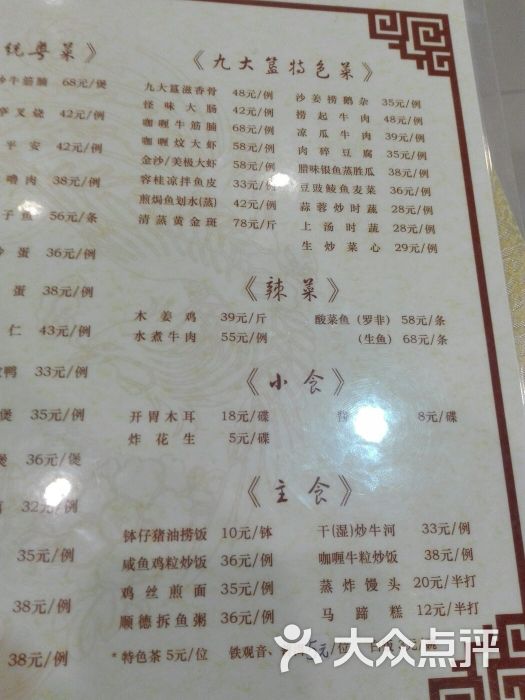 统粤菜》
牛筋腩 68元/煲
叉烧 42元/例
平安 42元/例
噜肉 38元/例
子鱼 56元/条
蛋 36元/例
蛋 38元/例
仁 43元/例
鸭 33元/例
煲 35元/例
煲 36元/煲
32元/例
35元/例
38元/例
38元/例
《九大簋特色菜》
九大簋滋香骨 48元/例
怪味大肠 42元/例
咖喱牛筋腩 68元/例
咖喱炆大虾 58元/例
金沙/美极大虾 58元/例
容桂凉拌鱼皮 33元/例
煎焗鱼划水(蒸) 42元/例
清蒸黄金斑 78元/斤
沙姜捞鹅杂 35元/例
捞起牛肉 48元/例
凉瓜牛肉 39元/例
肉碎豆腐 35元/例
腊味银鱼蒸胜瓜 38元/例
豆豉鲮鱼麦菜 36元/例
蒜蓉炒时蔬 28元/例
上汤时蔬 28元/例
生炒菜心 29元/例
《辣菜》
木姜鸡 39元/斤
水煮牛肉 55元/例
酸菜鱼 (罗非) 58元/条
(生鱼) 68元/条
《小食》
开胃木耳 18元/碟
炸花生 5元/碟
8元/碟
《主食》
钵仔猪油捞饭 10元/钵
咸鱼鸡粒炒饭 36元/例
鸡丝煎面 35元/例
顺德拆鱼粥 36元/例
干(湿)炒牛河 33元/例
咖喱牛粒炒饭 38元/例
蒸炸馒头 20元/半打
马蹄糕 12元/半打
*特色茶 5元/位 铁观音、
大众点评